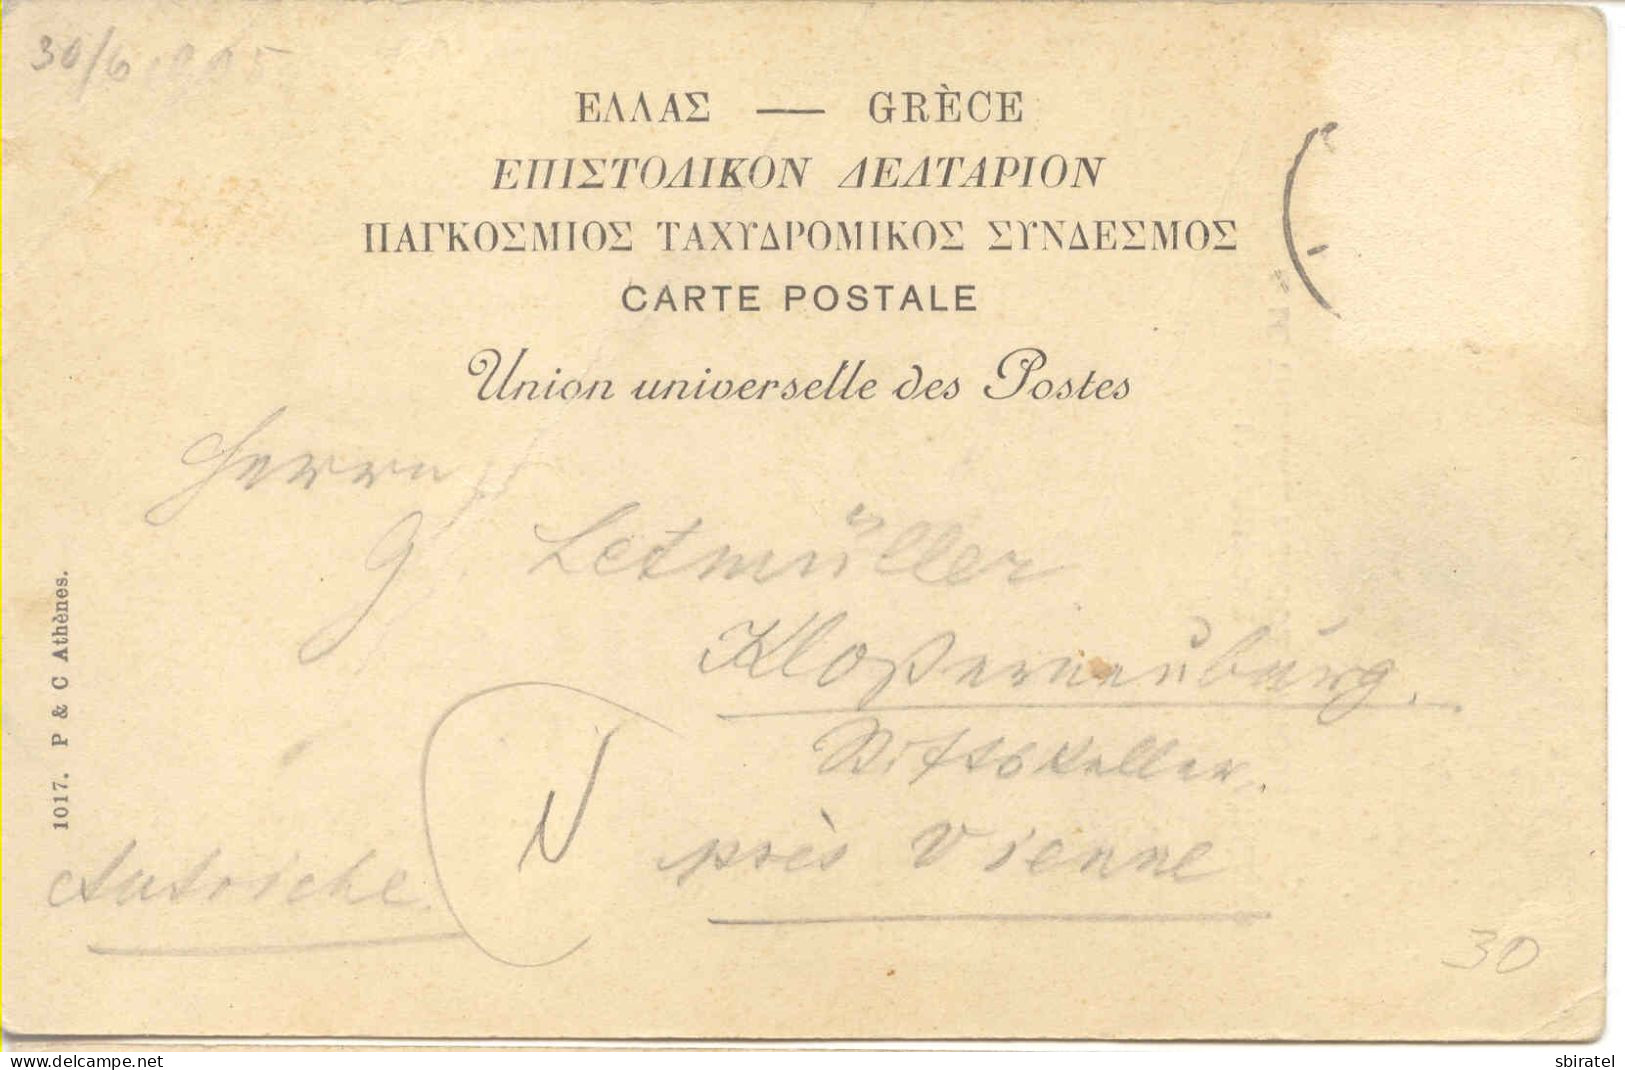 30/6 1905
ΕΛΛΑΣ — GRÈCE
ΕΠΙΣΤΟΛΙΚΟΝ ΔΕΛΤΑΡΙΟΝ
ΠΑΓΚΟΣΜΙΟΣ ΤΑΧΥΔΡΟΜΙΚΟΣ ΣΥΝΔΕΣΜΟΣ
CARTE POSTALE
Union universelle des Postes
Herrn
G. Letmüller
Kloßerneuburg.
Stiftskeller.
près Vienne
Autriche
N
30
1017. P & C Athènes.
www.delcampe.net
sbiratel